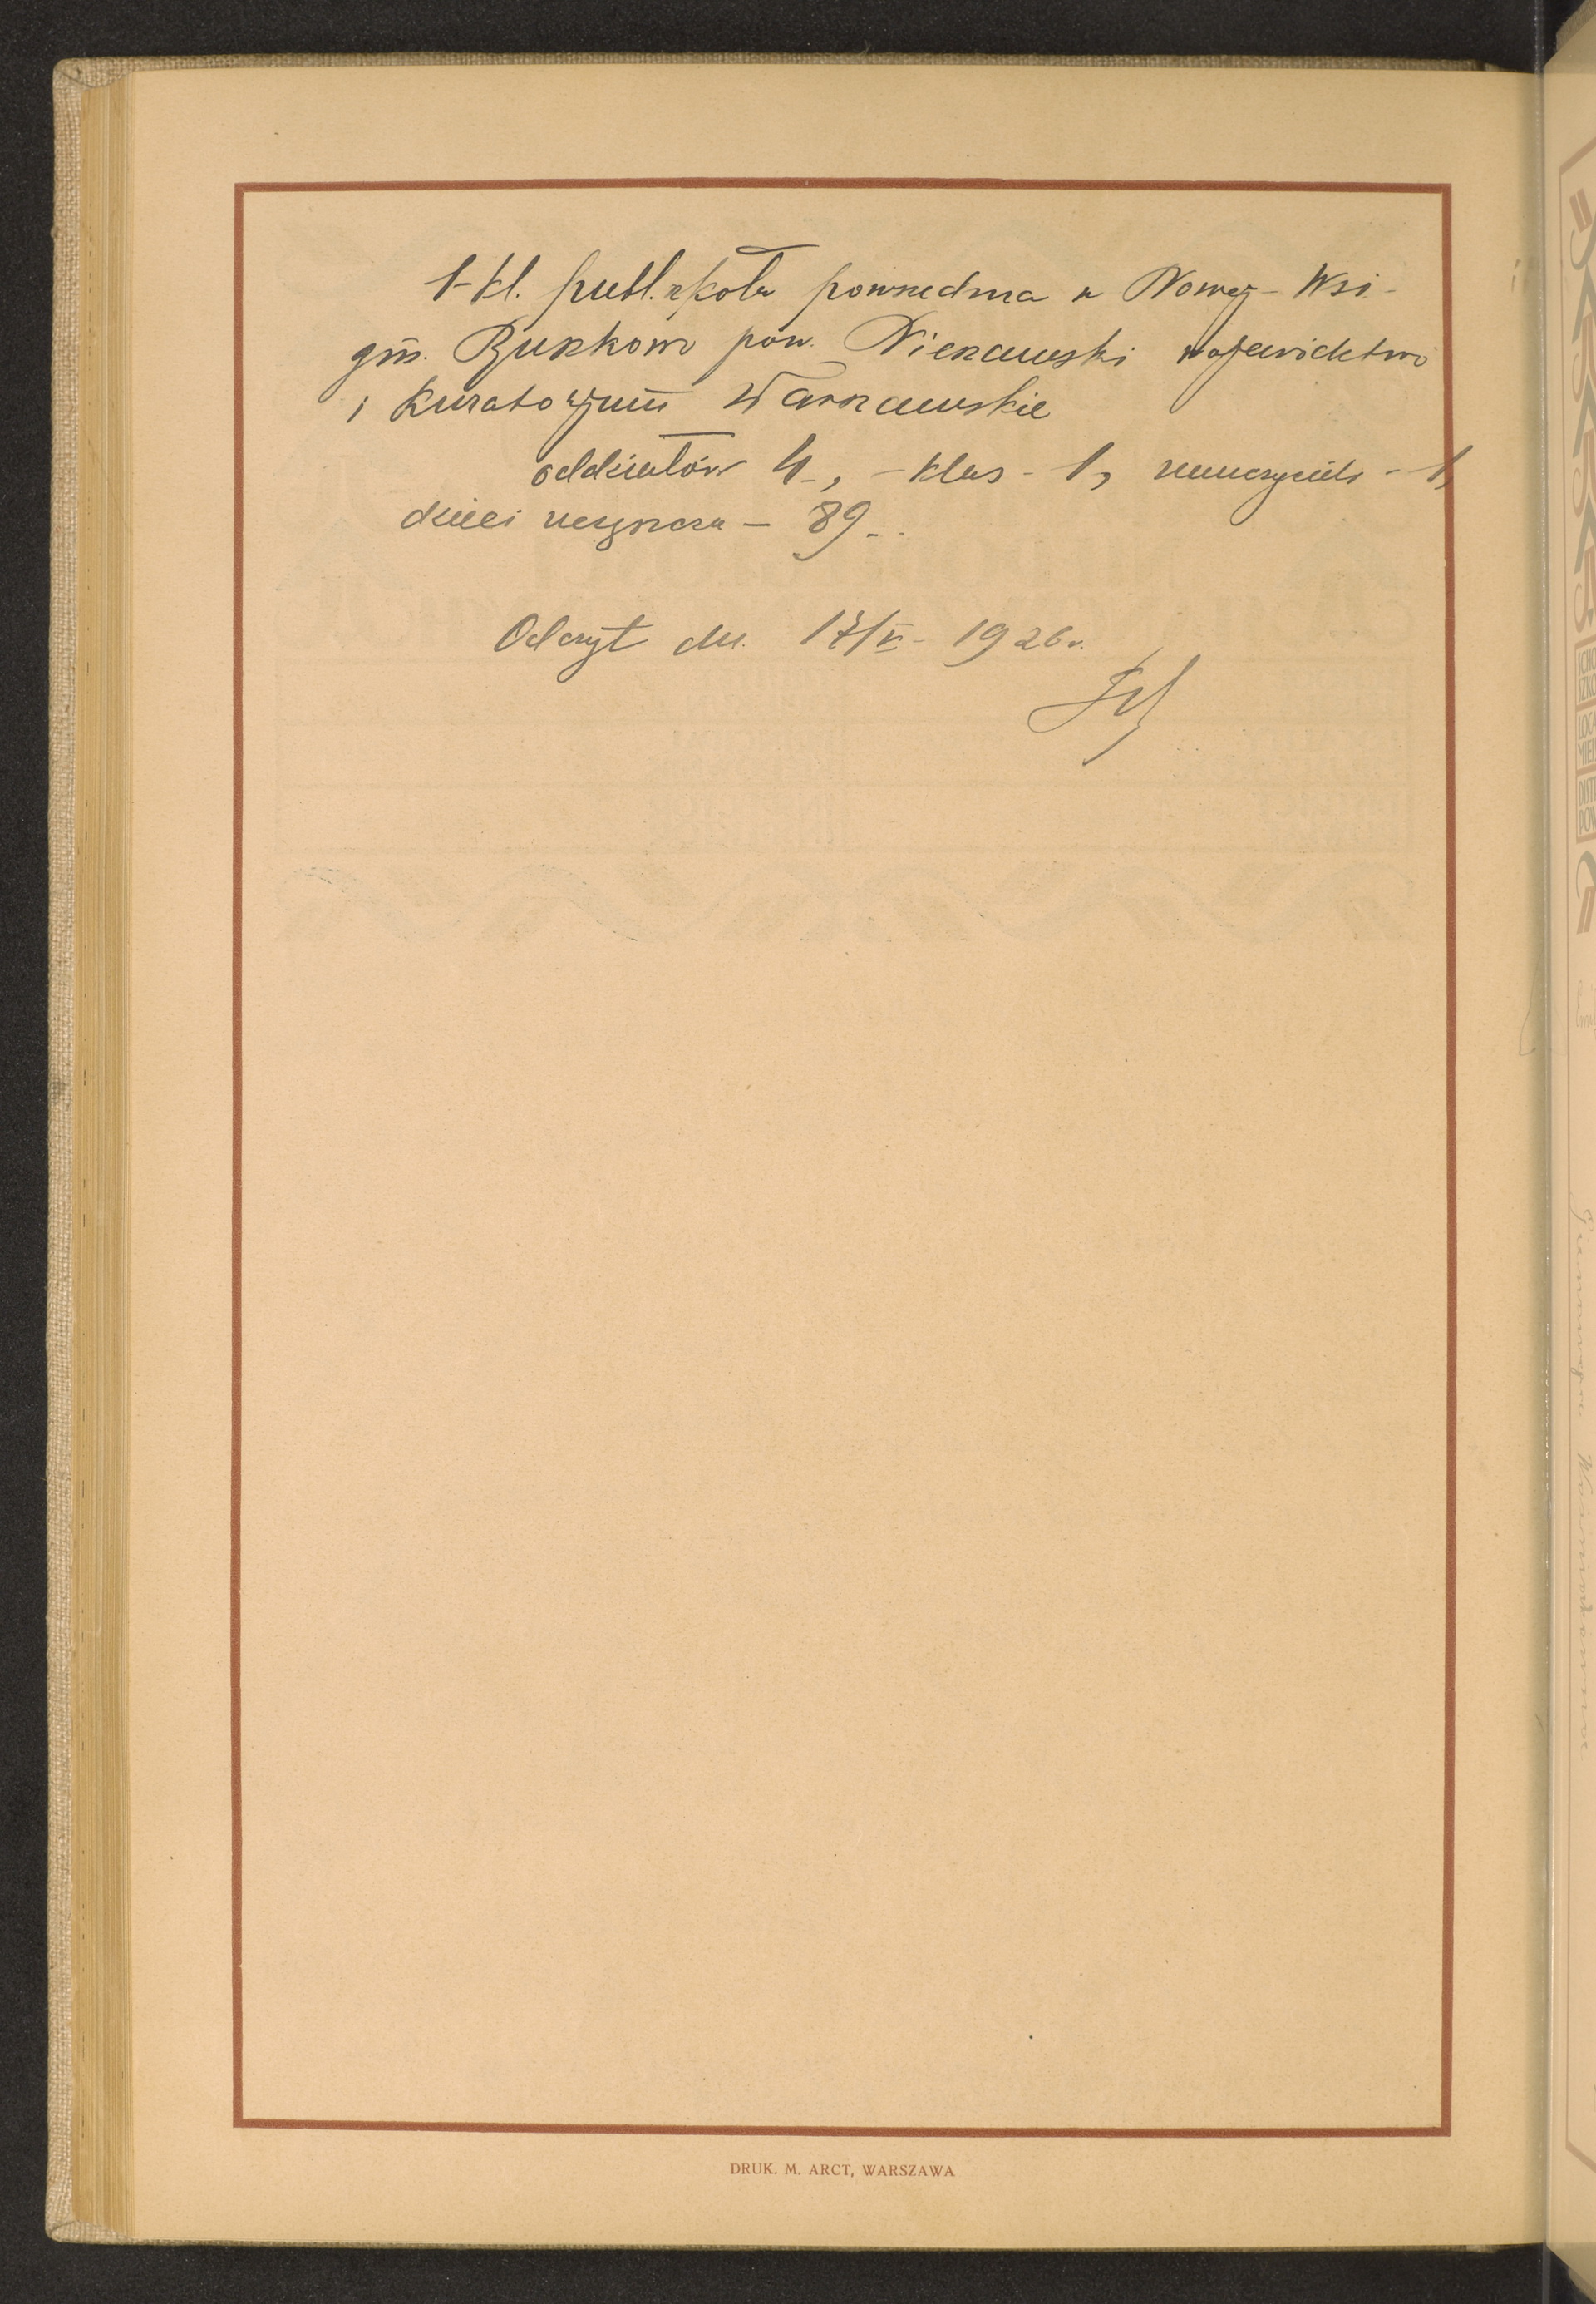 1-kl. publ. szkoła powszechna w Nowej-Wsi-
gm. Byszkowo pow. Nieszawski województwo
i Kuratorjum Warszawskie
oddziałów 4-, - klas - 1, nauczycieli - 1,
dzieci uczęszcza - 89-.
Odczyt dn. 17/V- 1926 r.
DRUK. M. ARCT, WARSZAWA